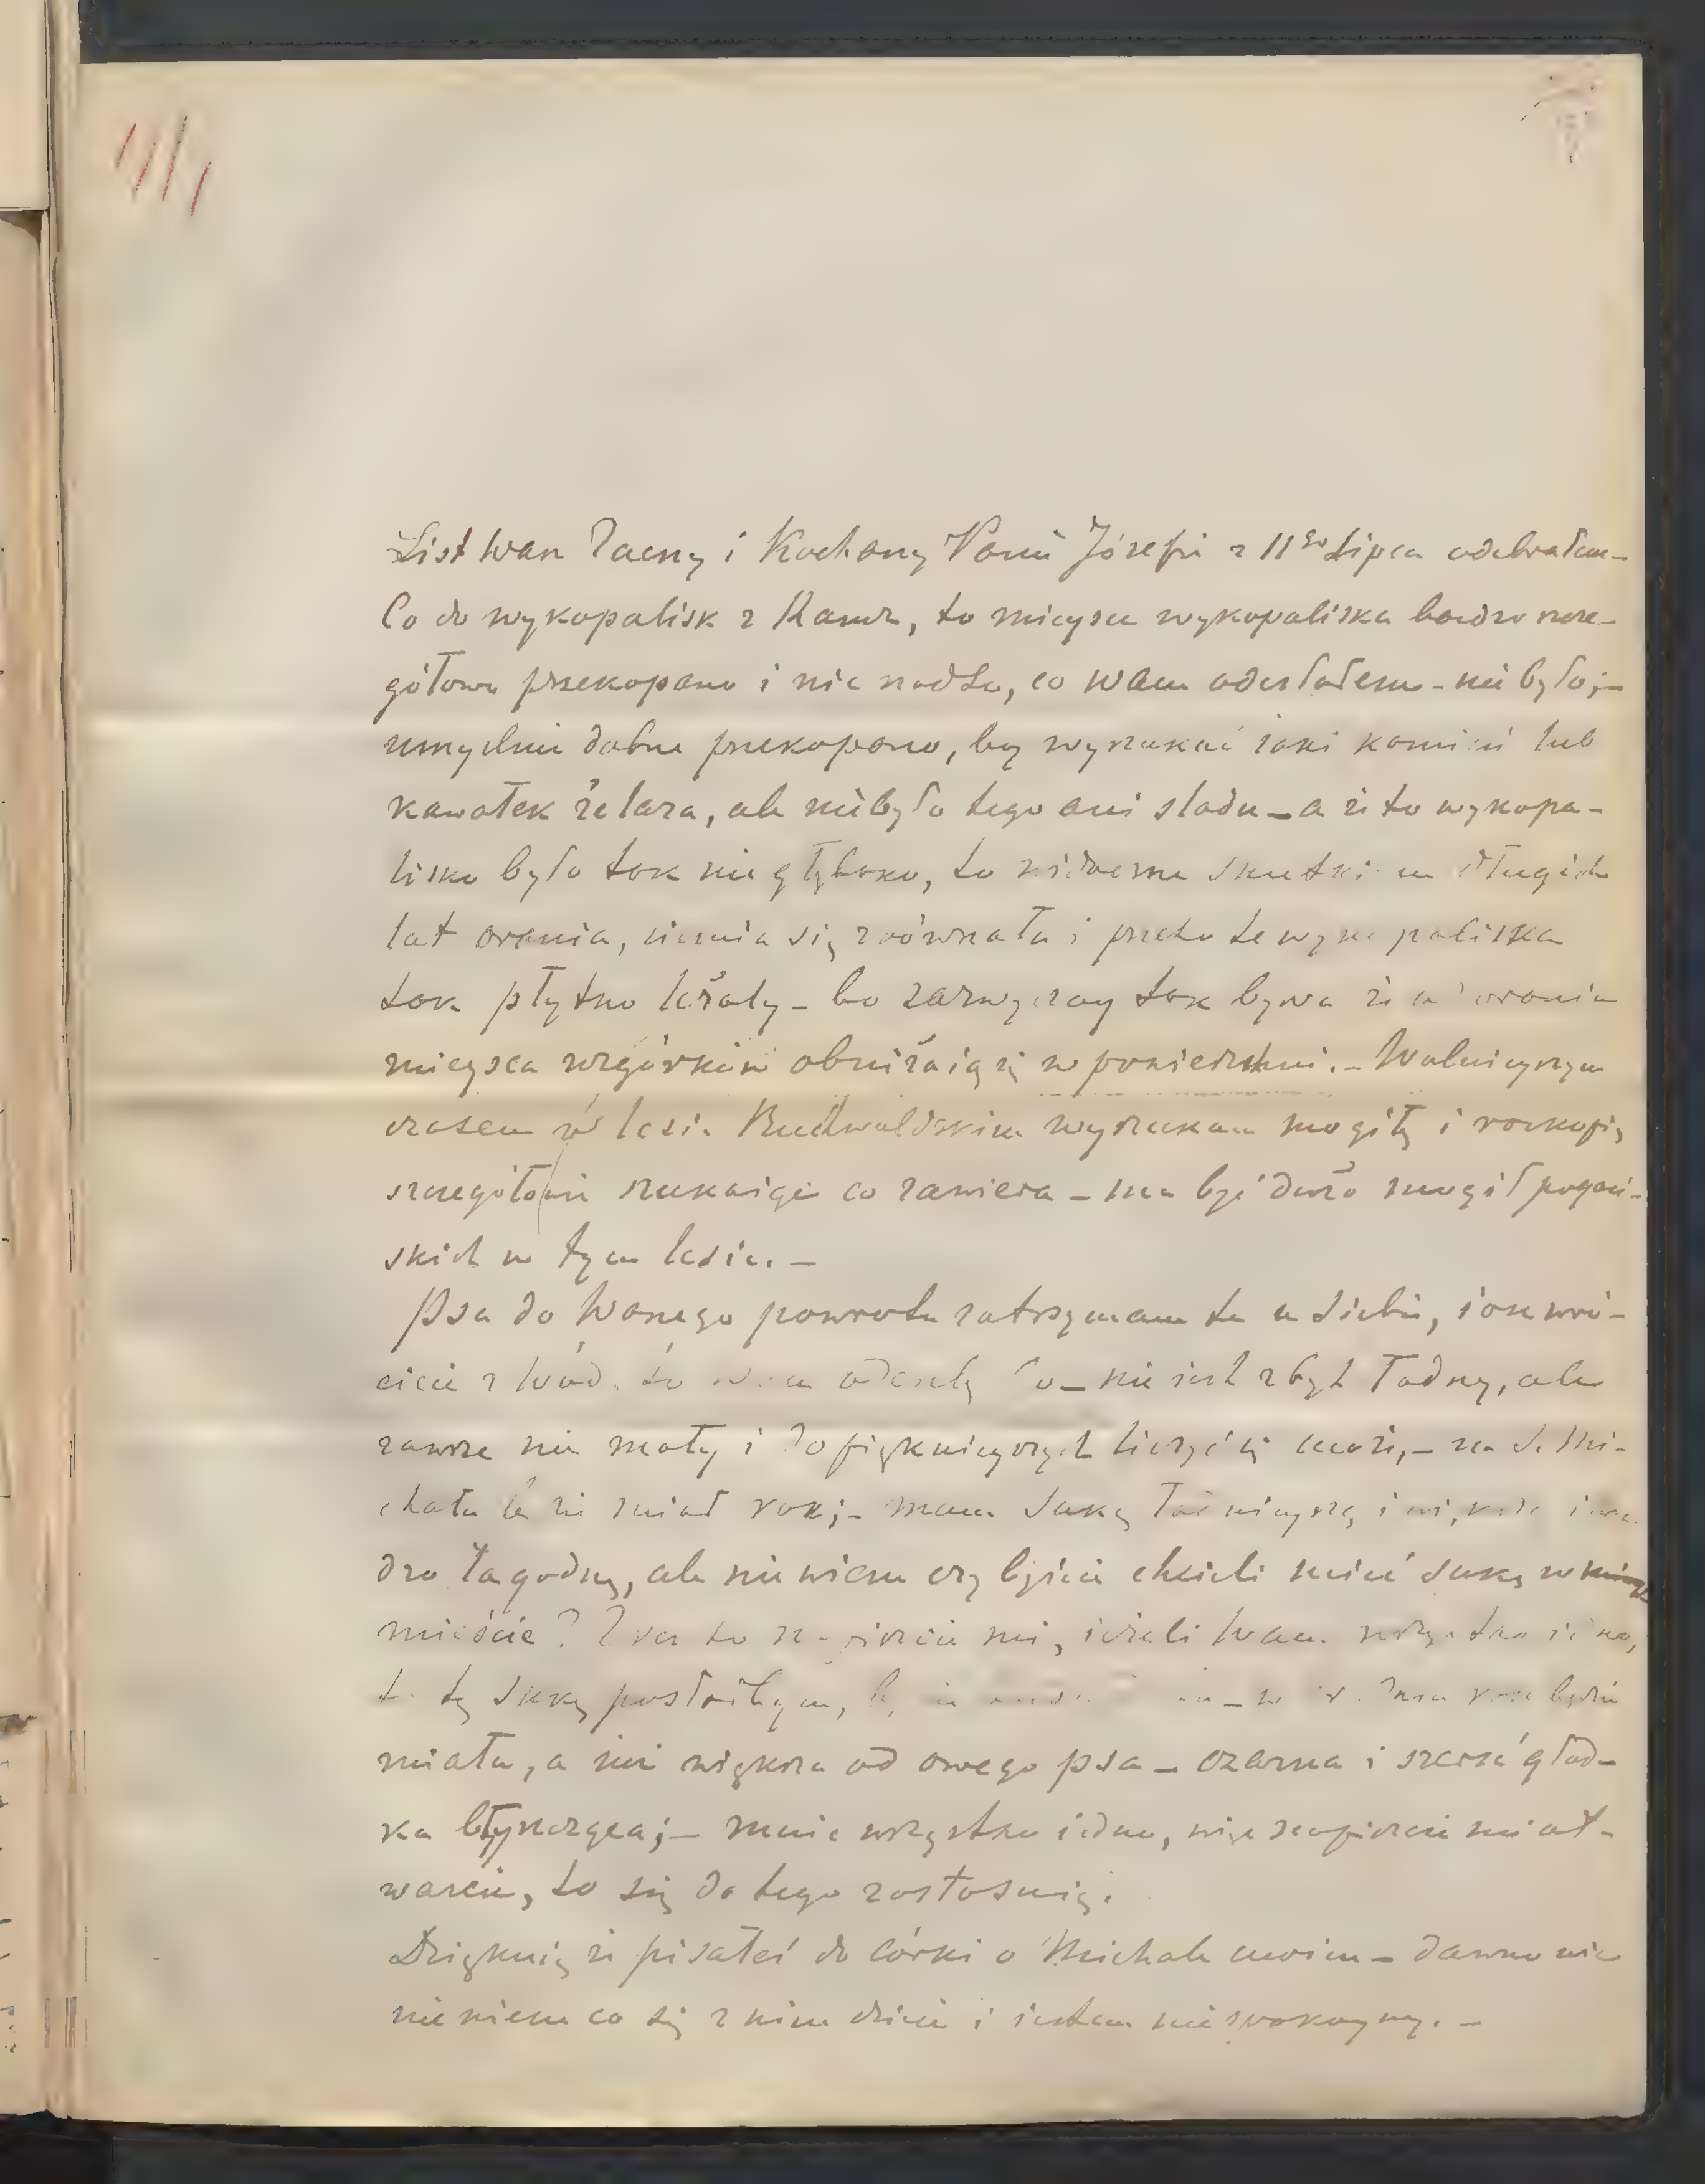 List Wasz Zacny i Kochany Panie Józefie z 11go Lipca odebrałem –
Co do wykopalisk z Ramz, to mieysce wykopaliska bardzo szcze-
gółowo przekopano i nic nadto, co Wam odesłałem – nie było; –
umyślnie dobrze przekopano, by wyszukać iaki kamień lub
kawałek żelaza, ale niebyło tego ani śladu – a że to wykopa-
lisko było tak nie głęboko, to widocznie skutkiem długich
lat orania, ziemia się zrównała i przeto te wykopaliska
tak płytko leżały – bo zazwyczay tak bywa że od orania
mieysca wzgórków obniżaią się w powierzchni. – Wolnieyszym
czasem w lesie Buchwaldskim wyszukam mogiłę i rozkopię
szczegółowie szukaiąc co zawiera – ma być dużo mogił pogań-
skich w tym lesie. –
Psa do Waszego powrotu zatrzymam tu u siebie, iak wró-
cicie z wód, to Wam odeszlę go – nie iest zbyt ładny, ale
zawsze nie mały i do pięknieyszych liczyć się może, – na S. Mi-
chała będzie miał rok; – mam sukę ładnieyszą i
dzo łagodną, ale nie wiem czy byście chcieli mieć sukę w
mieście? Zraz to napiszcie mi, ieżeli Wam wszystko iedno,
to tę sukę posłałbym, rok będzie
miała, a iuż większa od owego psa – czarna i szerść gład-
ka błyszcząca; – mnie wszystko iedno, więc napiszcie mi ot-
warcie, to się do tego zastosuię.
Dziękuię że pisałeś do Córki o Michale moim – dawno nic
nie wiem co się z nim dzieie i iestem niespokoyny. –